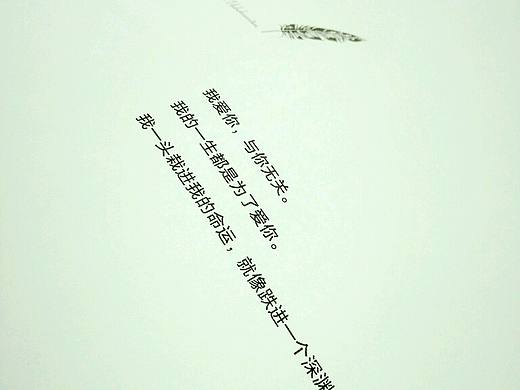 我爱你，与你无关。
我的一生都是为了爱你。
我一头栽进我的命运，就像跌进一个深渊